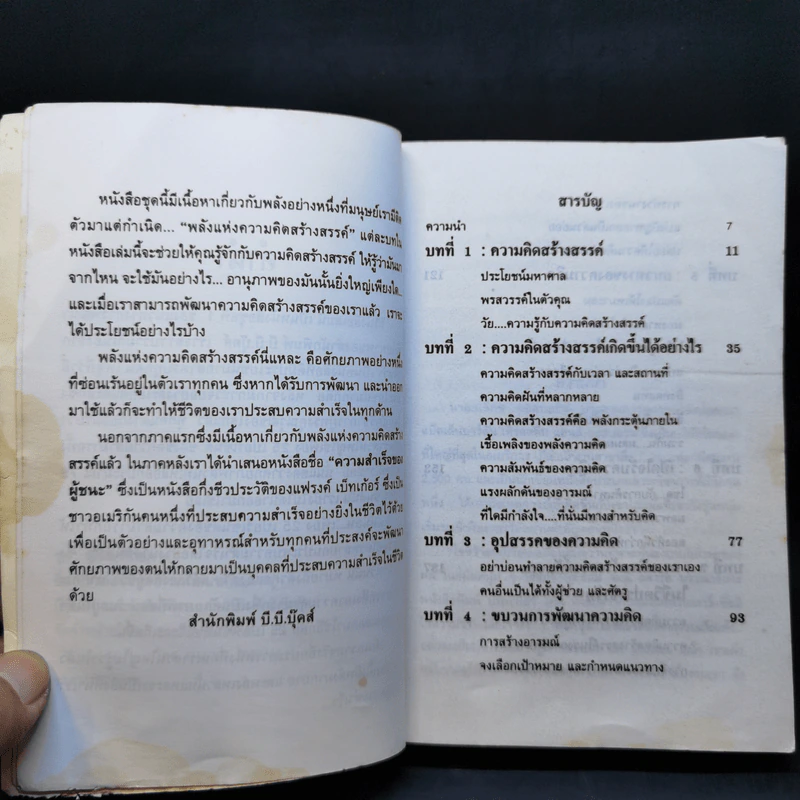 หนังสือชุดนี้มีเนื้อหาเกี่ยวกับพลังอย่างหนึ่งที่มนุษย์เรามีติด
ตัวมาแต่กำเนิด... “พลังแห่งความคิดสร้างสรรค์” แต่ละบทใน
หนังสือเล่มนี้จะช่วยให้คุณรู้จักกับความคิดสร้างสรรค์ ให้รู้ว่ามันมา
จากไหน จะใช้มันอย่างไร... อานุภาพของมันนั้นยิ่งใหญ่เพียงใด...
และเมื่อเราสามารถพัฒนาความคิดสร้างสรรค์ของเราแล้ว เราจะ
ได้ประโยชน์อย่างไรบ้าง
พลังแห่งความคิดสร้างสรรค์นี่แหละ คือศักยภาพอย่างหนึ่ง
ที่ซ่อนเร้นอยู่ในตัวเราทุกคน ซึ่งหากได้รับการพัฒนา และนำออก
มาใช้แล้วก็จะทำให้ชีวิตของเราประสบความสำเร็จในทุกด้าน
นอกจากภาคแรกซึ่งมีเนื้อหาเกี่ยวกับพลังแห่งความคิดสร้าง
สรรค์แล้ว ในภาคหลังเราได้นำเสนอหนังสือชื่อ “ความสำเร็จของ
ผู้ชนะ” ซึ่งเป็นหนังสือกึ่งชีวประวัติของแฟรงค์ เบ็ทเก้อร์ ซึ่งเป็น
ชาวอเมริกันคนหนึ่งที่ประสบความสำเร็จอย่างยิ่งในชีวิตไว้ด้วย
เพื่อเป็นตัวอย่างและอุทาหรณ์สำหรับทุกคนที่ประสงค์จะพัฒนา
ศักยภาพของตนให้กลายมาเป็นบุคคลที่ประสบความสำเร็จในชีวิต
ด้วย
สำนักพิมพ์ บี.บี.บุ๊คส์
สารบัญ
ความนำ 7
บทที่ 1 : ความคิดสร้างสรรค์ 11
ประโยชน์มหาศาล
พรสวรรค์ในตัวคุณ
วัย....ความรู้กับความคิดสร้างสรรค์
บทที่ 2 : ความคิดสร้างสรรค์เกิดขึ้นได้อย่างไร 35
ความคิดสร้างสรรค์กับเวลา และสถานที่
ความคิดฝันที่หลากหลาย
ความคิดสร้างสรรค์คือ พลังกระตุ้นภายใน
เชื้อเพลิงของพลังความคิด
ความสัมพันธ์ของความคิด
แรงผลักดันของอารมณ์
ที่ใดมีกำลังใจ....ที่นั่นมีทางสำหรับคิด
บทที่ 3 : อุปสรรคของความคิด 77
อย่าบ่อนทำลายความคิดสร้างสรรค์ของเราเอง
คนอื่นเป็นได้ทั้งผู้ช่วย และศัตรู
บทที่ 4 : ขบวนการพัฒนาความคิด 93
การสร้างอารมณ์
จงเลือกเป้าหมาย และกำหนดแนวทาง